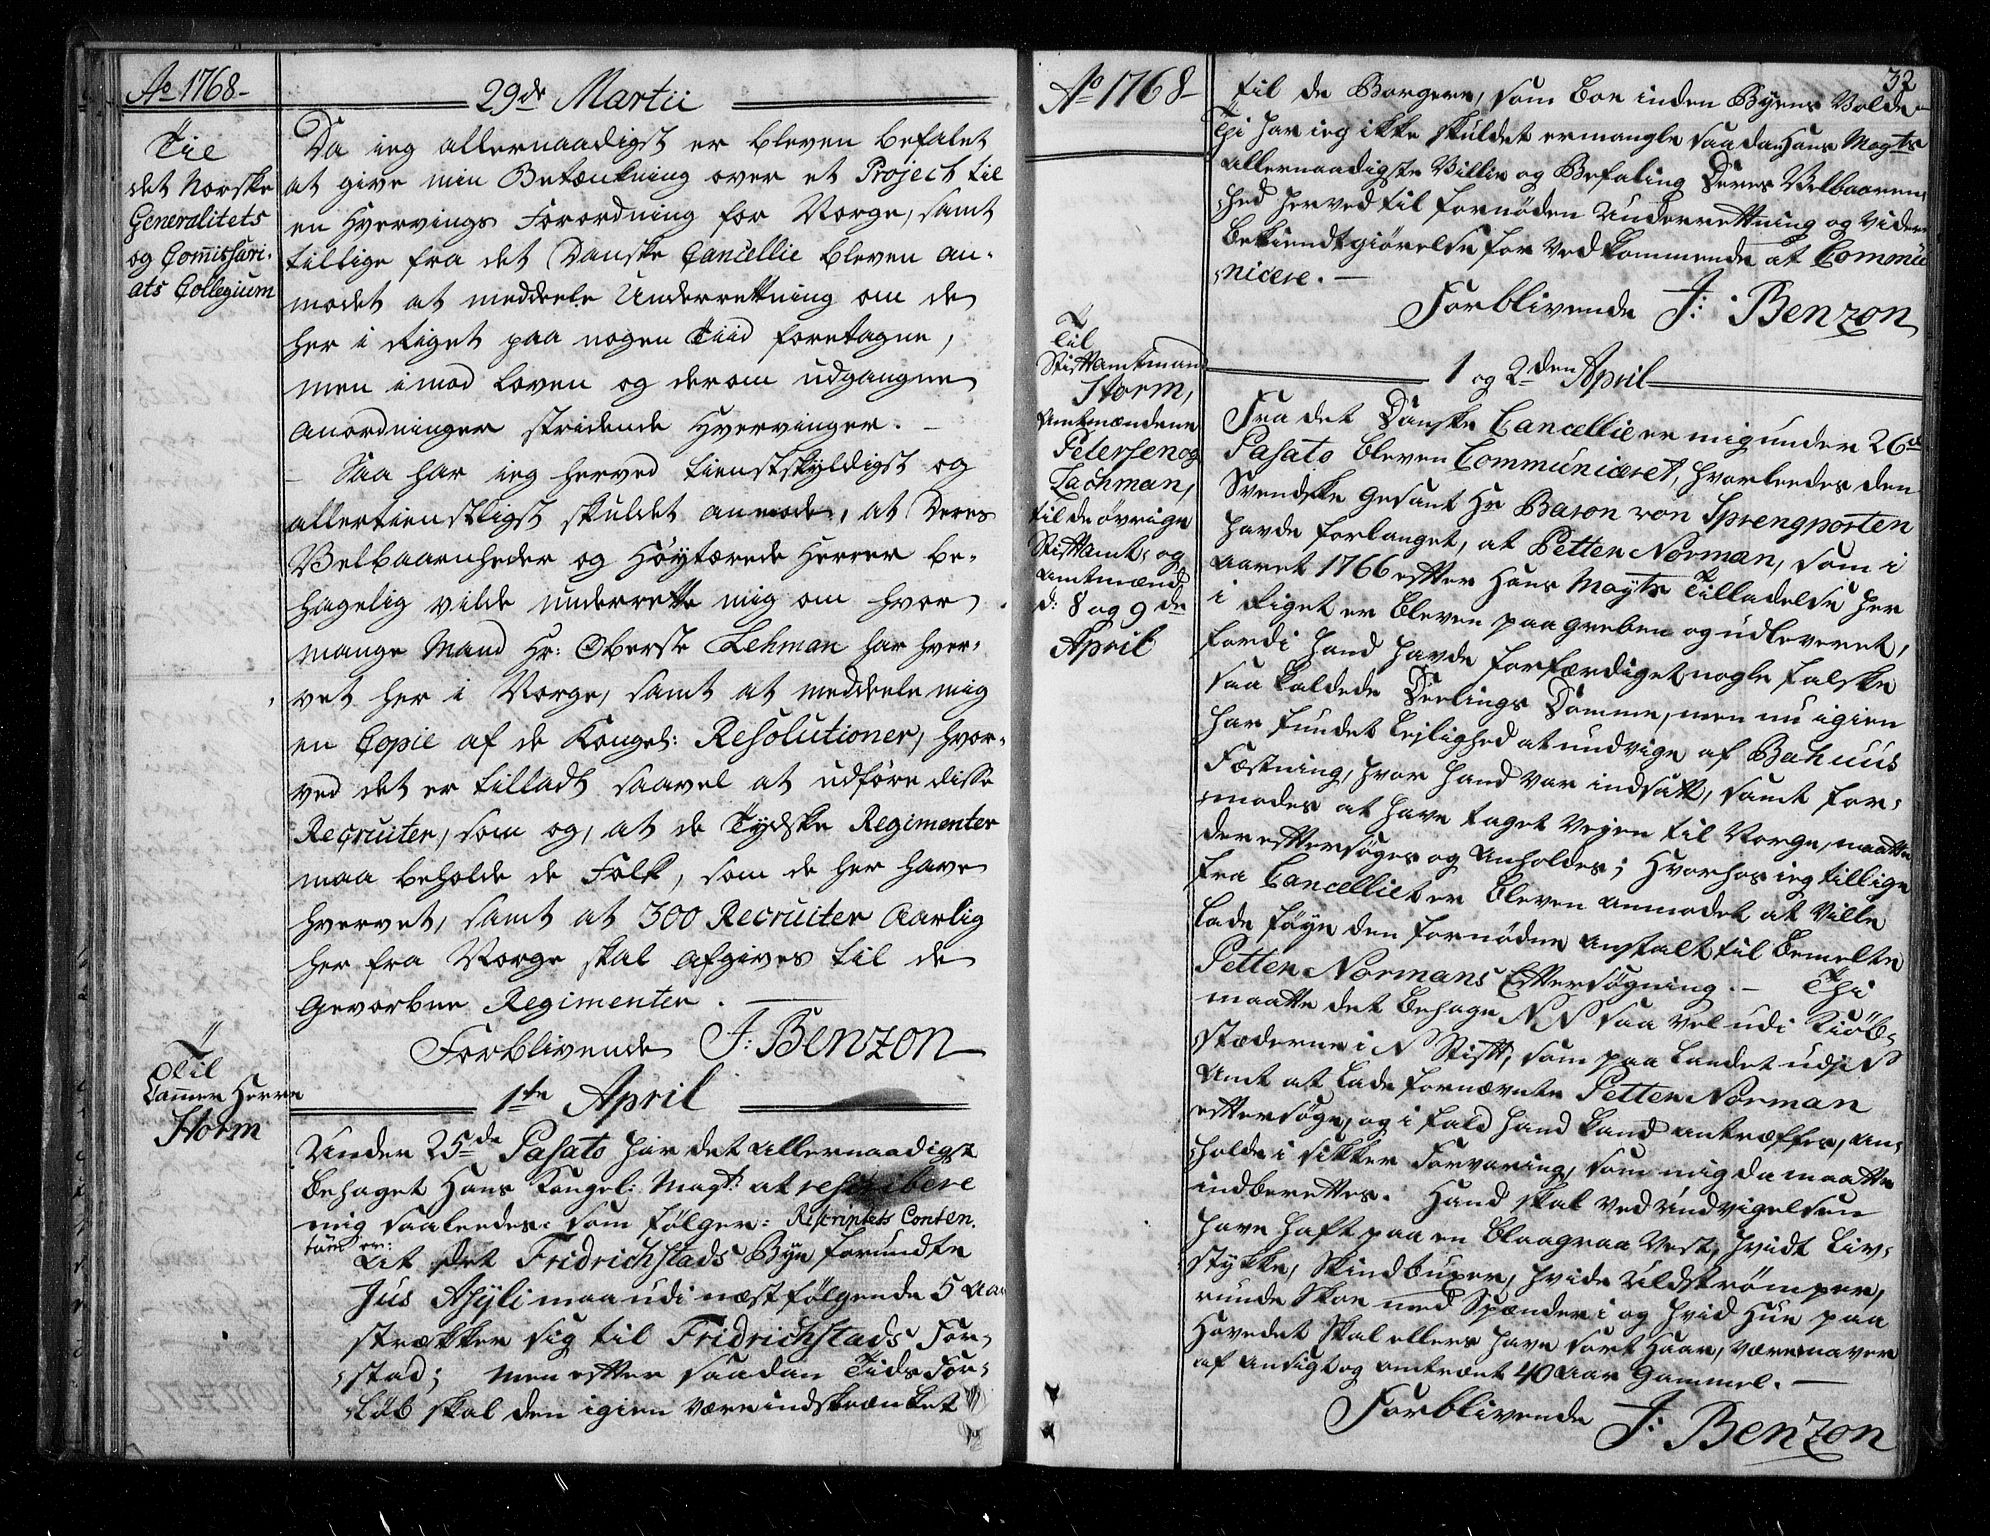 Ao 1768-
29de Martii
Til
det Norske
Generalitets
og Comissari-
ats Collegium
Da ieg allernaadigst er bleven befalet
at give min Betænkning over et Project til
en Hvervings Forordning for Norge, samt
tillige fra det Danske Cancellie bleven an-
modet at meddeele Underrettning om de
her i Riget paa nogen Tiid foretagne,
men imod Loven og derom udgangne
Anordninger stridende Hvervinger. —
Saa har ieg herved tienstskyldigst og
allertienstligst skuldet anmode, at Deres
Velbaarnheder og Høytærede Herrer be-
hagelig vilde underrette mig om hvor
mange Mand Hr: Oberste Lehman har hver-
vet her i Norge, samt at meddeele mig
en Copie af de Kongel: Resolutioner, hvor-
ved det er tilladt saavel at udføre disse
Recruiter, som og, at de Tydske Regimenter
maa beholde de Folk, som de her have
hvervet, samt at 300 Recruiter Aarlig
her fra Norge skal afgives til de
Gevorbne Regimenter. —
Forblivende J: Benzon
1te April
Til
Cammer Herre
Storm
Under 25de Pasato har det allernaadigst
behaget Hans Kongel: Mayt: at rescribere
mig saaledes som følger: Rescriptets Conten-
tum er:
At det Fridrichstads Bye forundte
Jus Asyli maa udi næstfølgende 5 Aar
strækker sig til Fridrichstads For-
stad; men efter saadan Tids For-
løb skal den igien være indskrænket
32
Ao 1768-
til de Borgere, som boe inden Byens Volde.
Thi har ieg ikke skuldet ermangle saadan Hans Mayts
allernaadigste Villie og Befaling Deres Velbaaren-
hed herved til fornøden Underrettning og videre
bekiendtgiørelse for Vedkommende at Comoni-
nicere. —
Forblivende J: Benzon
1 og 2den April
Til
Stiftamtmand
Storm,
Amtmændene
Petersen og
Lachman,
til de øvrige
Stiftamt- og
Amtmænd
d: 8 og 9de
April
Fra det Danske Cancellie er mig under 26de
Pasato bleven Communiceret, hvorleedes den
Svendske Gesant Hr Baron von Sprengporten
havde forlanget, at Petter Norman, som i
Aaret 1766 efter Hans Mayts Tilladelse her
i Riget er bleven paagreben og udleveret,
fordi hand havde forfærdiget nogle falske
saa kaldede Deelings Domme, men nu igien
har fundet Leylighed at undvige af Bahuus
Fæstning, hvor hand var indsatt, samt for-
modes at have taget Veyen til Norge, maatte
der eftersøges og Anholdes; Hvorhos ieg tillige
fra Cancelliet er bleven anmodet at ville
lade føye den fornødne Anstalt til bemelte
Petter Normans Eftersøgning. — Thi
maatte det behage N N saa vel udi Kiøb-
stæderne i N Stift, som paa Landet udi N
Amt at lade fornævnte Petter Norman
eftersøge, og i fald hand kand antræffes, an-
holde i sikker Forvaring, som mig da maatte
indberettes. Hand skal ved Undvigelsen
have haft paa en blaagraa Vest, hvidt Liv-
stykke, Skindbuxer, hvide Uldstrømper,
runde Skoe med Spænder i og hvid Hue paa
Hovedet skal ellers have sort Haar, være maver
af Ansigt og omtrent 40 Aar Gammel. —
Forblivende J: Benzon